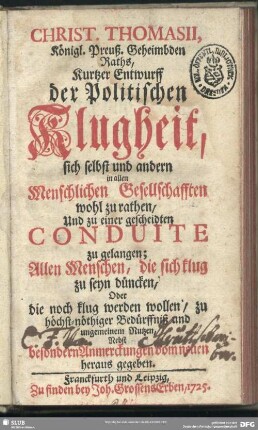 CHRIST. THOMASII,
Königl. Preuß. Geheimbden
Raths,
Kurtzer Entwurff
der Politischen
Klugheit,
sich selbst und andern
in allen
Menschlichen Gesellschafften
wohl zu rathen,
Und zu einer gescheidten
CONDUITE
zu gelangen;
Allen Menschen, die sich klug
zu seyn düncken,
Oder
die noch klug werden wollen, zu
höchst-nöthiger Bedürffniß und
ungemeinem Nutzen,
Nebst
besondern Anmerckungen vom neuen
heraus gegeben.
Franckfurth und Leipzig,
Zu finden bey Joh. Grossens Erben, 1725.
SLUB